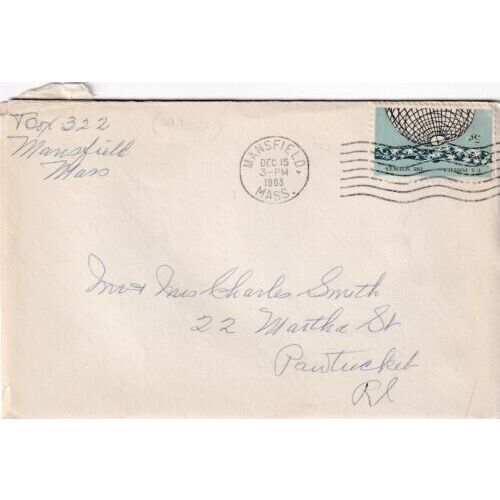 Box 322
Mansfield
Mass
MANSFIELD,
DEC 15
3-PM
1963
MASS.
5¢
U.S. POSTAGE THE SCIENCES
Mr & Mrs Charles Smith
22 Martha St
Pawtucket
RI